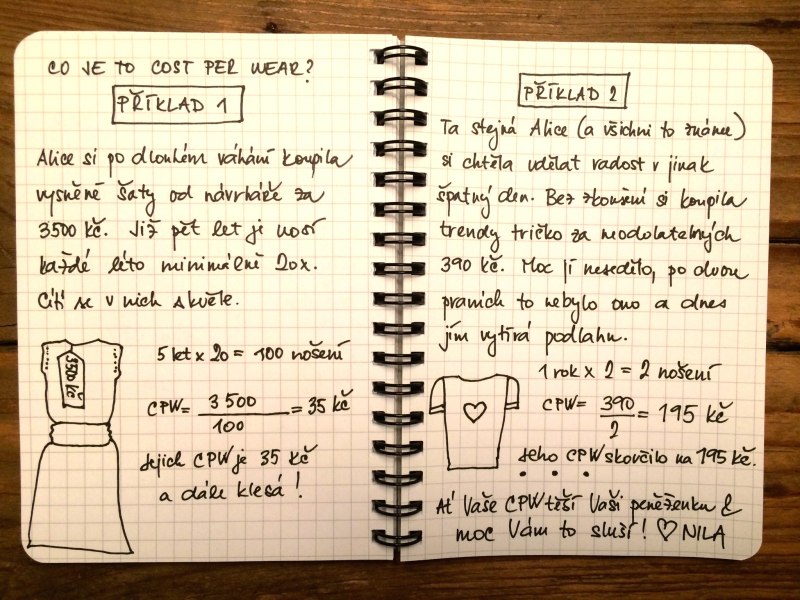 CO JE TO COST PER WEAR?
PŘÍKLAD 1
Alice si po dlouhém váhání koupila
vysněné šaty od návrháře za
3500 kč. Již pět let ji nosí
každé léto minimálně 20x.
Cítí se v nich skvěle.
3500 kč
5 let x 20 = 100 nošení
CPW = 3 500
100
= 35 kč
Jejich CPW je 35 kč
a dále klesá!
PŘÍKLAD 2
Ta stejná Alice (a všichni to známe)
si chtěla udělat radost v jinak
špatný den. Bez zkoušení si koupila
trendy tričko za neodolatelných
390 kč. Moc jí nesedělo, po dvou
praních to nebylo ono a dnes
jím vytírá podlahu.
1 rok x 2 = 2 nošení
CPW = 390
2
= 195 kč
Jeho CPW skončilo na 195 kč.
• • •
Ať Vaše CPW těší Vaši peněženku &
moc Vám to sluší! ♡ NILA